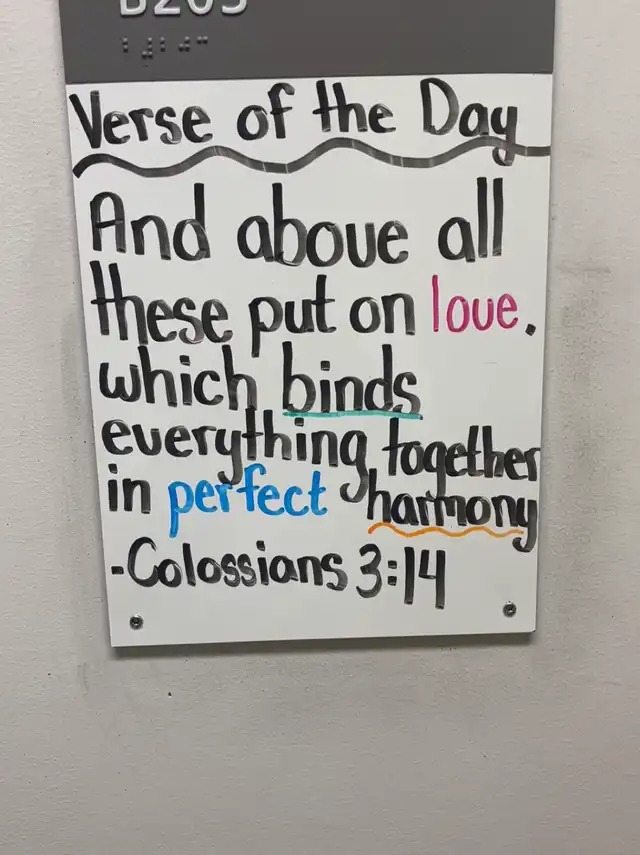 B205
Verse of the Day
And above all
these put on love.
which binds
everything together
in perfect harmony
-Colossians 3:14